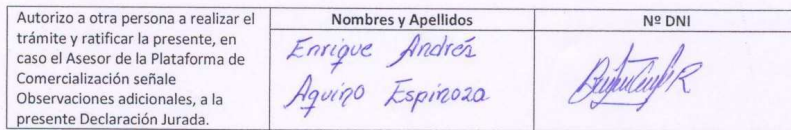 Autorizo a otra persona a realizar el
trámite y ratificar la presente, en
caso el Asesor de la Plataforma de
Comercialización señale
Observaciones adicionales, a la
presente Declaración Jurada.
Nombres y Apellidos
Enrique Andrés
Aquino Espinoza
Nº DNI